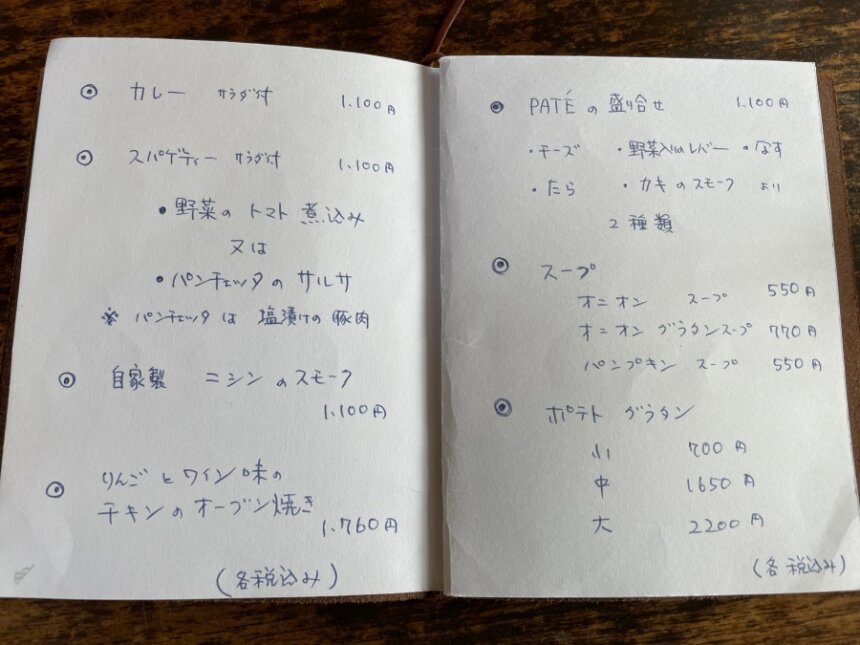 ◉ カレー サラダ付 1.100円
◉ スパゲティー サラダ付 1.100円
• 野菜の トマト 煮込み
又は
• パンチェッタの サルサ
※ パンチェッタは 塩漬けの 豚肉
◉ 自家製 ニシン のスモーク
1.100円
◉ りんごと ワイン 味の
チキンの オーブン焼き
1.760円
(各税込み)
◉ PATÉ の 盛り合せ 1.100円
・チーズ ・野菜入りレバー ・なす
・たら ・カキのスモーク より
2種類
◉ スープ
オニオン スープ 550円
オニオン グラタンスープ 770円
パンプキン スープ 550円
◉ ポテト グラタン
小 700円
中 1650円
大 2200円
(各 税込み)